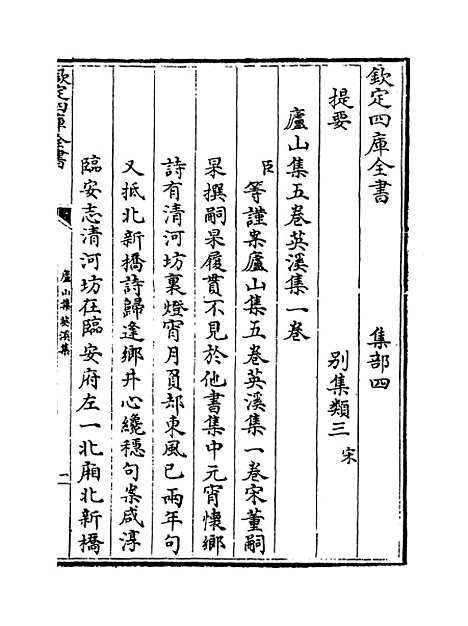 欽定四庫全書 集部四
提要 別集類三 宋
廬山集五卷英溪集一卷
臣等謹案廬山集五卷英溪集一卷宋董嗣
杲撰嗣杲履貫不見於他書集中元宵懷鄉
詩有清河坊裏燈宵月負却東風已兩年句
又抵北新橋詩歸逢鄉井心纔穩句案咸淳
臨安志清河坊在臨安府左一北廂北新橋
欽定四庫全書
廬山集 英溪集
一